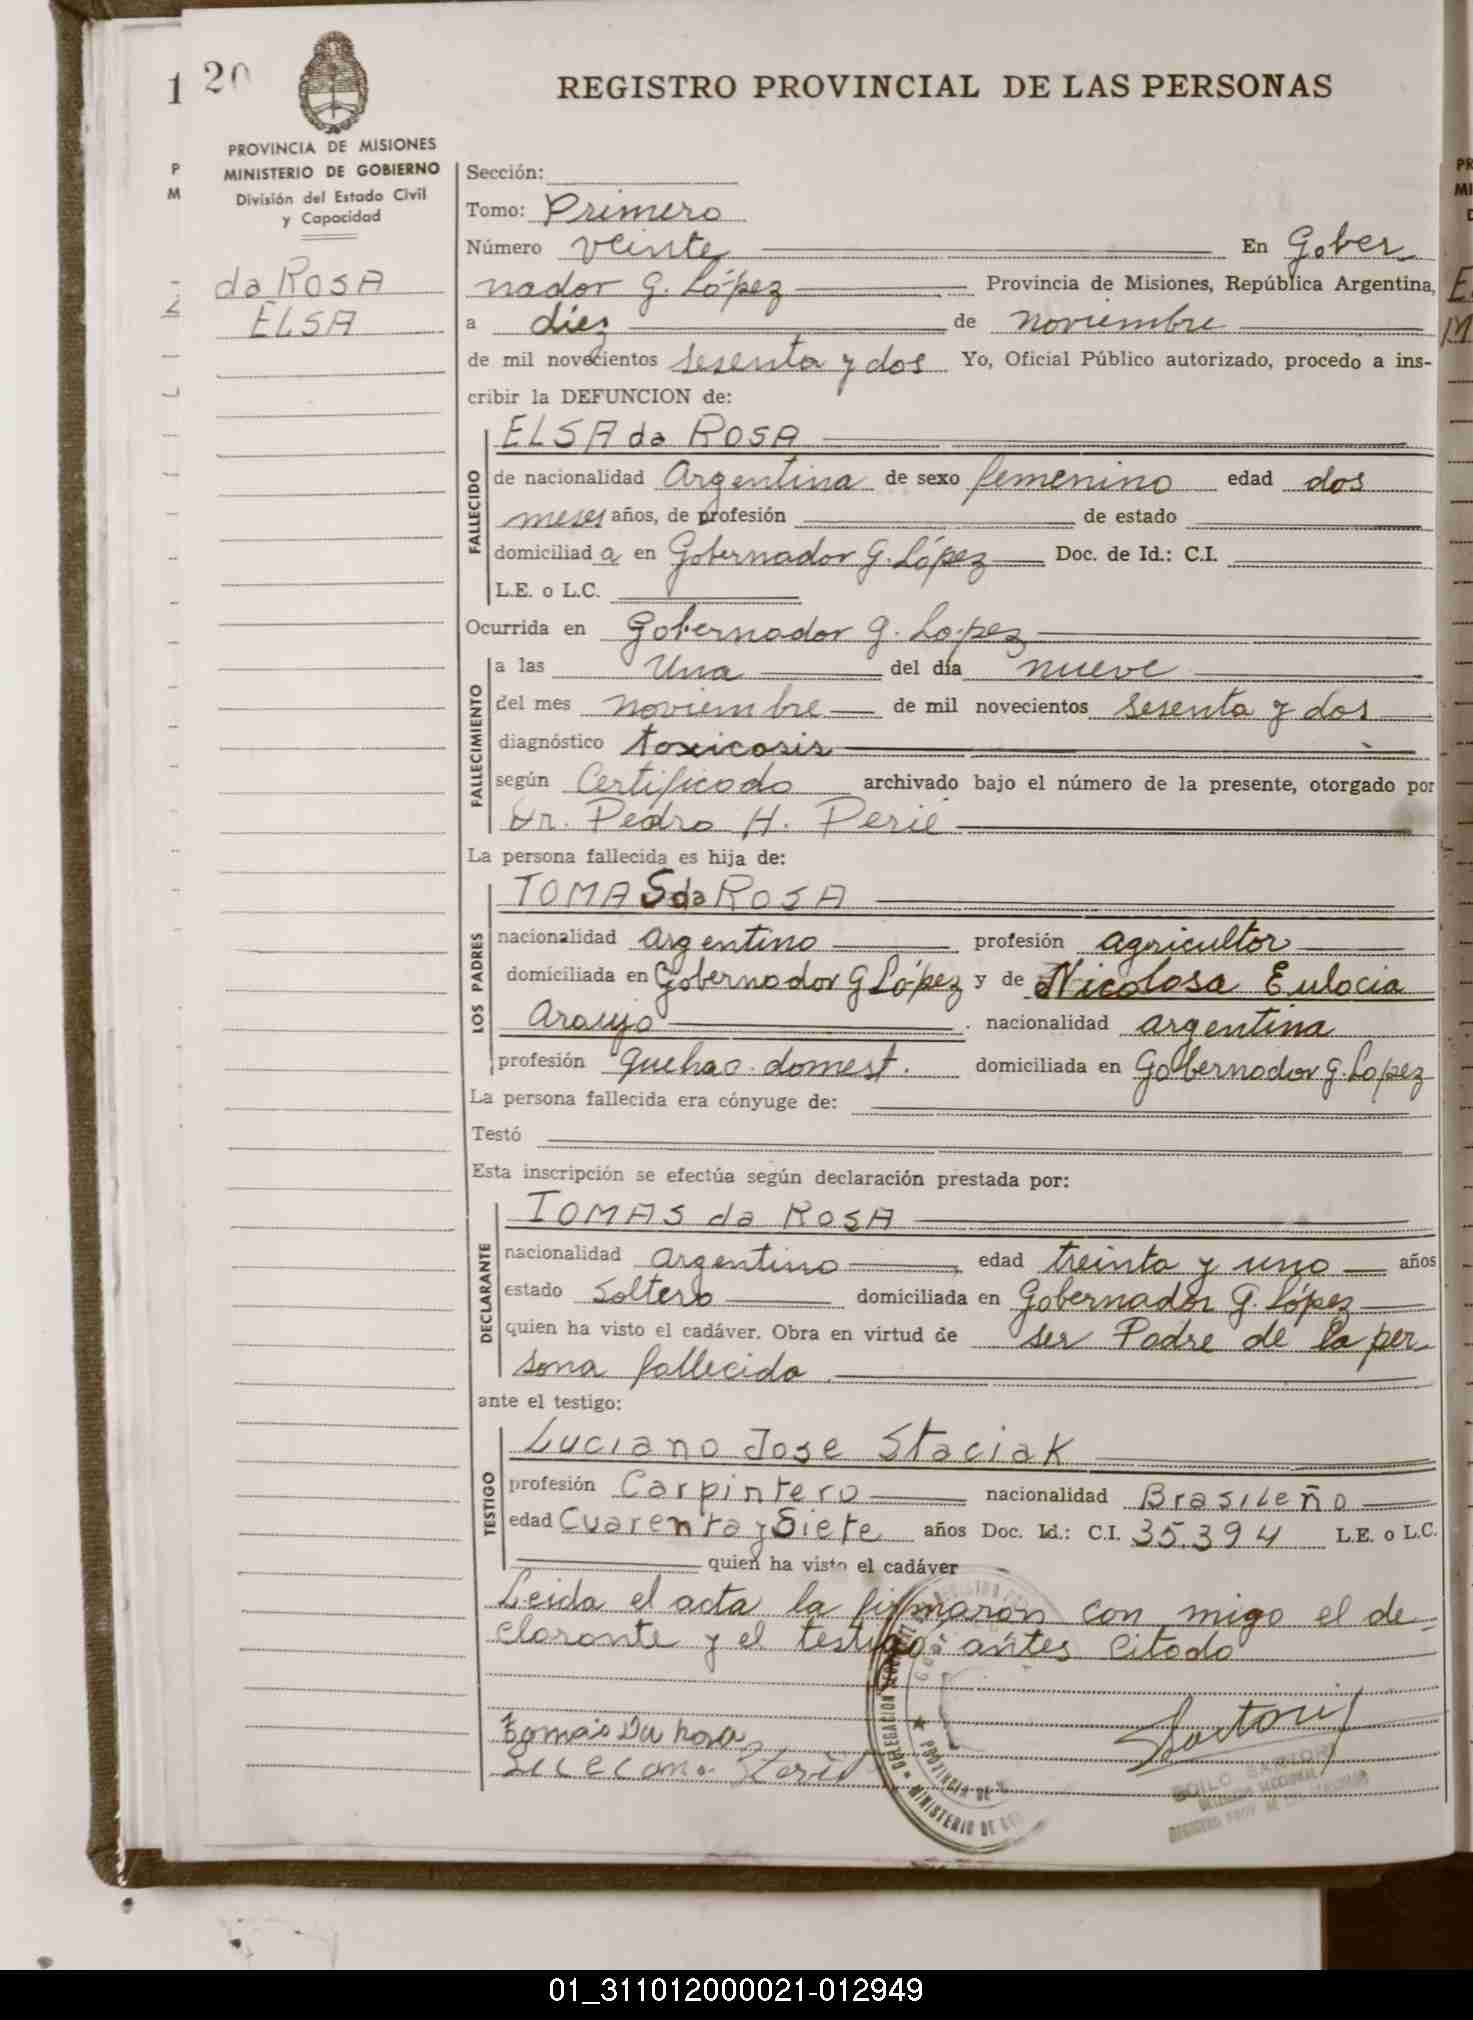 1 20
REGISTRO PROVINCIAL DE LAS PERSONAS
PROVINCIA DE MISIONES
MINISTERIO DE GOBIERNO
División del Estado Civil
y Capacidad
da ROSA
ELSA
Sección:
Tomo: Primero
Número veinte En Gober
nador G. López Provincia de Misiones, República Argentina,
a diez de noviembre
de mil novecientos sesenta y dos Yo, Oficial Público autorizado, procedo a ins-
cribir la DEFUNCION de:
FALLECIDO
ELSA da ROSA
de nacionalidad Argentina de sexo femenino edad dos
meses años, de profesión de estado
domiciliad a en Gobernador G. López Doc. de Id.: C.I.
L.E. o L.C.
Ocurrida en Gobernador G. Lopez
FALLECIMIENTO
a las Una del día nueve
del mes noviembre de mil novecientos sesenta y dos
diagnóstico toxicosis
según Certificado archivado bajo el número de la presente, otorgado por
Dr. Pedro H. Perié
La persona fallecida es hija de:
LOS PADRES
TOMAS da ROSA
nacionalidad argentino profesión agricultor
domiciliada en Gobernador G López y de Nicolosa Eulocia
Araujo nacionalidad argentina
profesión quehac. domest. domiciliada en Gobernador G. Lopez
La persona fallecida era cónyuge de:
Testó
Esta inscripción se efectúa según declaración prestada por:
DECLARANTE
TOMAS da ROSA
nacionalidad argentino edad treinta y uno años
estado Soltero domiciliada en Gobernador G. López
quien ha visto el cadáver. Obra en virtud de ser Padre de la per
sona fallecida
ante el testigo:
TESTIGO
Luciano Jose Staciak
profesión Carpintero nacionalidad Brasileño
edad Cuarenta y Siete años Doc. Id.: C.I. 35.394 L.E. o L.C.
quien ha visto el cadáver
Leida el acta la firmaron con migo el de-
clarante y el testigo antes citado
Tomás Da Rosa
Sartori
DELEGACION
PROVINCIA DE
MINISTERIO DE
01_311012000021-012949